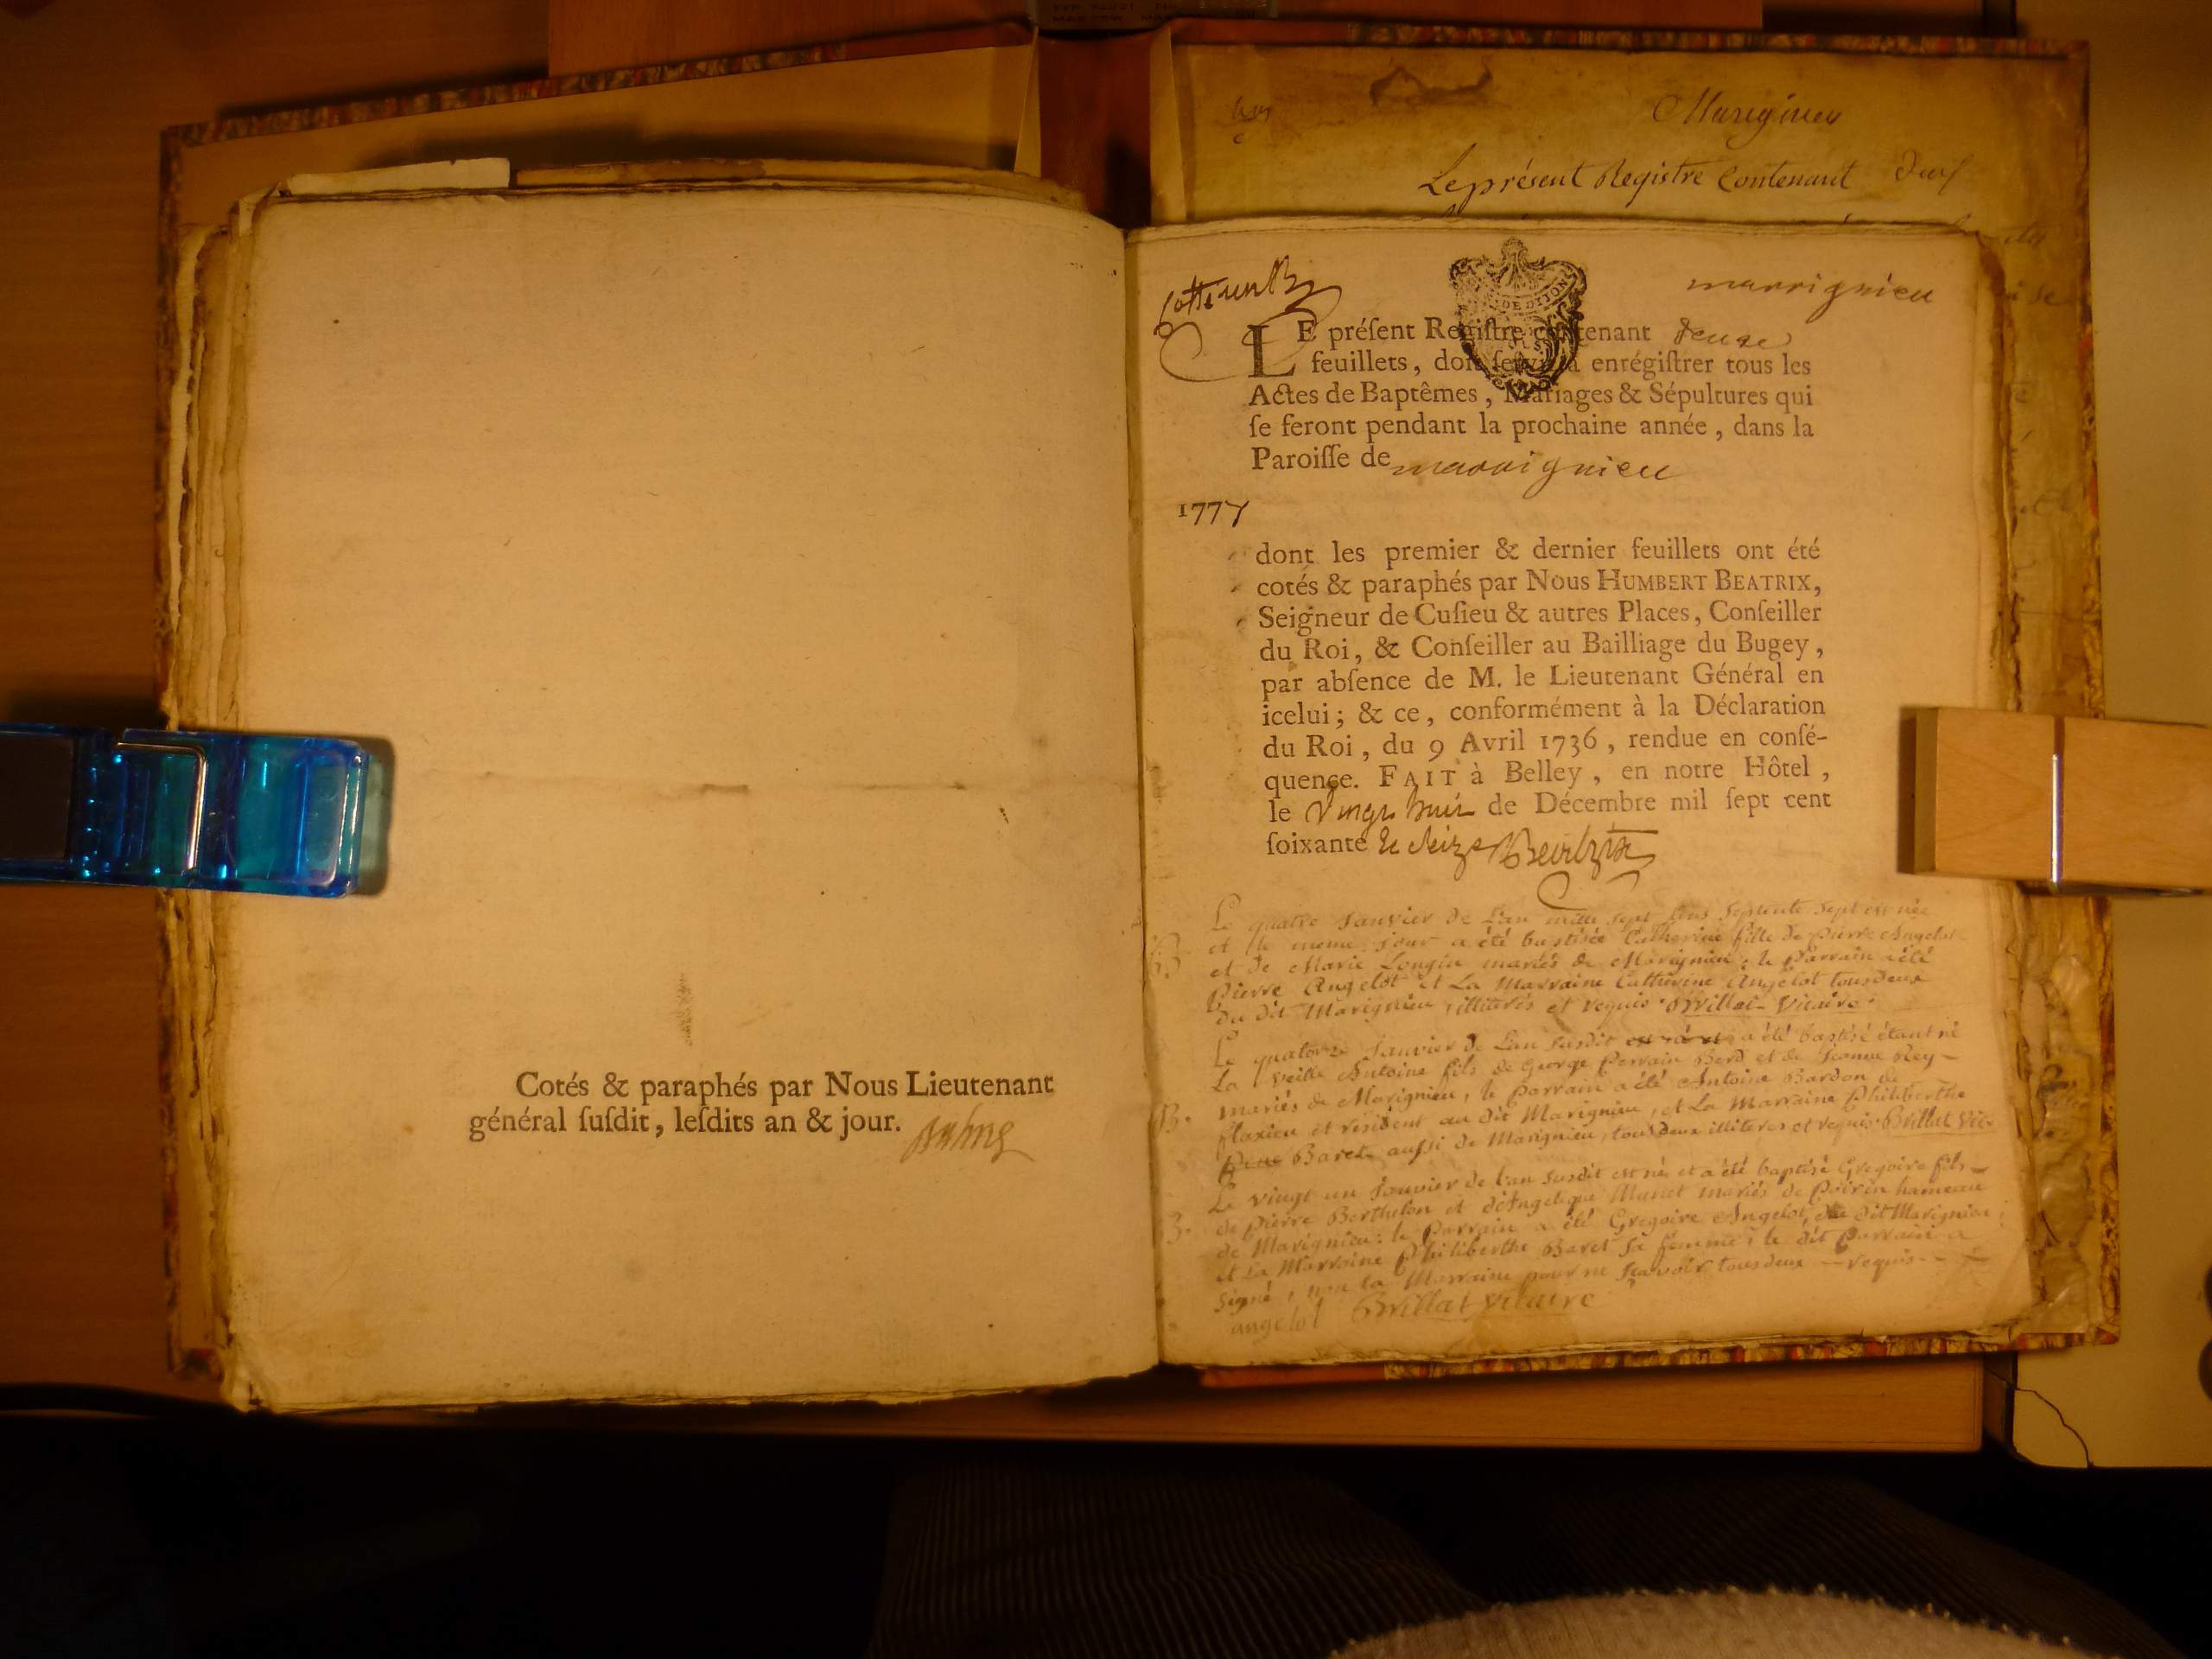 Cotés & paraphés par Nous Lieutenant
général ſuſdit, leſdits an & jour.
Marignieu
Le présent Registre Contenant
Cotte un
marrignieu
DE DIJON
LE préſent Regiſtre contenant douze
feuillets, doit ſervir à enrégiſtrer tous les
Actes de Baptêmes, Mariages & Sépultures qui
ſe feront pendant la prochaine année, dans la
Paroiſſe de marrignieu
1777
dont les premier & dernier feuillets ont été
cotés & paraphés par Nous HUMBERT BEATRIX,
Seigneur de Cuſieu & autres Places, Conſeiller
du Roi, & Conſeiller au Bailliage du Bugey,
par abſence de M. le Lieutenant Général en
icelui; & ce, conformément à la Déclaration
du Roi, du 9 Avril 1736, rendue en conſé-
quence. FAIT à Belley, en notre Hôtel,
le Vingt huit de Décembre mil ſept cent
ſoixante et seize Beatrix
Le quatre Janvier de L'an mille sept cens septente sept est née
et le meme jour a été baptisée Catherine fille de Pierre Angelot
B. et de Marie Longin mariés de Marignieu, le Parrain a été
Pierre Angelot et La Marraine Catherine Angelot tous deux
du dit Marignieu, illiterés et requis. Brillat-Vicaire.
Le quatorze Janvier de L'an susdit a été baptisé étant né
La Veille Antoine fils de George Berd et de Jeanne Rey
B. mariés de Marignieu, le Parrain a été Antoine Bardon de
flaxieu et résident au dit Marignieu, et La Marraine Philiberthe
Baret aussi de Marignieu, tous deux illiteres et requis. Brillat Vic.
Le vingt un Janvier de l'an susdit est né et a été baptisé Gregoire fils
B. de Pierre Berthelon et d'Angelique Munet mariés de Poirin hameau
de Marignieu: le Parrain a été Gregoire Angelot, du dit Marignieu,
et La Marraine Philiberthe Baret sa femme, le dit Parrain a
signé, non la Marraine pour ne sçavoir tous deux requis
angelot Brillat Vicaire